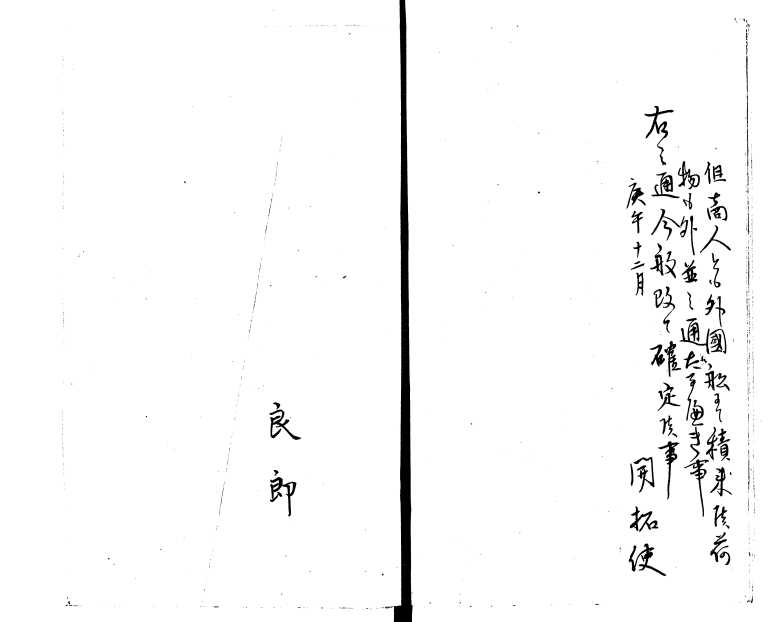 但商人とも外國船にて積来候荷
物も外並之通たるへき事
右之通今般改て確定候事
庚午十二月
開拓使
良郎